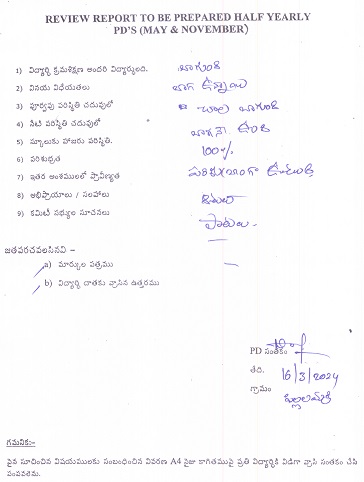 REVIEW REPORT TO BE PREPARED HALF YEARLY
PD'S (MAY & NOVEMBER)
1) విద్యార్థి క్రమశిక్షణ అందరి విద్యార్థులది. బాగుంది
2) వినయ విధేయతలు బాగ ఉన్నాయి
3) పూర్వపు పరిస్థితి చదువులో చాల బాగుంది
4) నేటి పరిస్థితి చదువులో బాగనే ఉంది
5) స్కూలుకు హాజరు పరిస్థితి. 100%
6) పరిశుభ్రత పరిశుభ్రంగా ఉంటుంది
7) ఇతర అంశములలో ప్రావీణ్యత
8) అభిప్రాయాలు / సలహాలు పాటలు -
9) కమిటీ సభ్యుల సూచనలు —
జతపరచవలసినవి –
a) మార్కుల పత్రము
b) విద్యార్థి దాతకు వ్రాసిన ఉత్తరము
PD సంతకం
తేది. 16/3/2024
గ్రామం
గమనిక:-
పైన సూచించిన విషయములకు సంబంధించిన వివరణ A4 సైజు కాగితముపై ప్రతి విద్యార్థికి విడిగా వ్రాసి సంతకం చేసి
పంపవలెను.